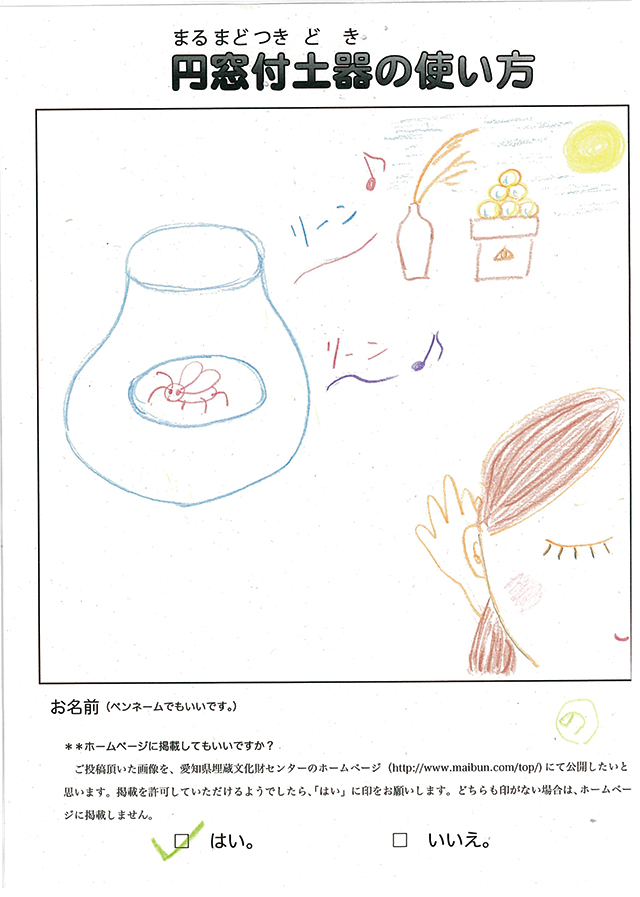 まるまどつきどき
円窓付土器の使い方
リーン
リーン
お名前（ペンネームでもいいです。）
の
＊＊ホームページに掲載してもいいですか？
ご投稿頂いた画像を、愛知県埋蔵文化財センターのホームページ（http://www.maibun.com/top/）にて公開したいと
思います。掲載を許可していただけるようでしたら、「はい」に印をお願いします。どちらも印がない場合は、ホームペー
ジに掲載しません。
□ はい。 □ いいえ。